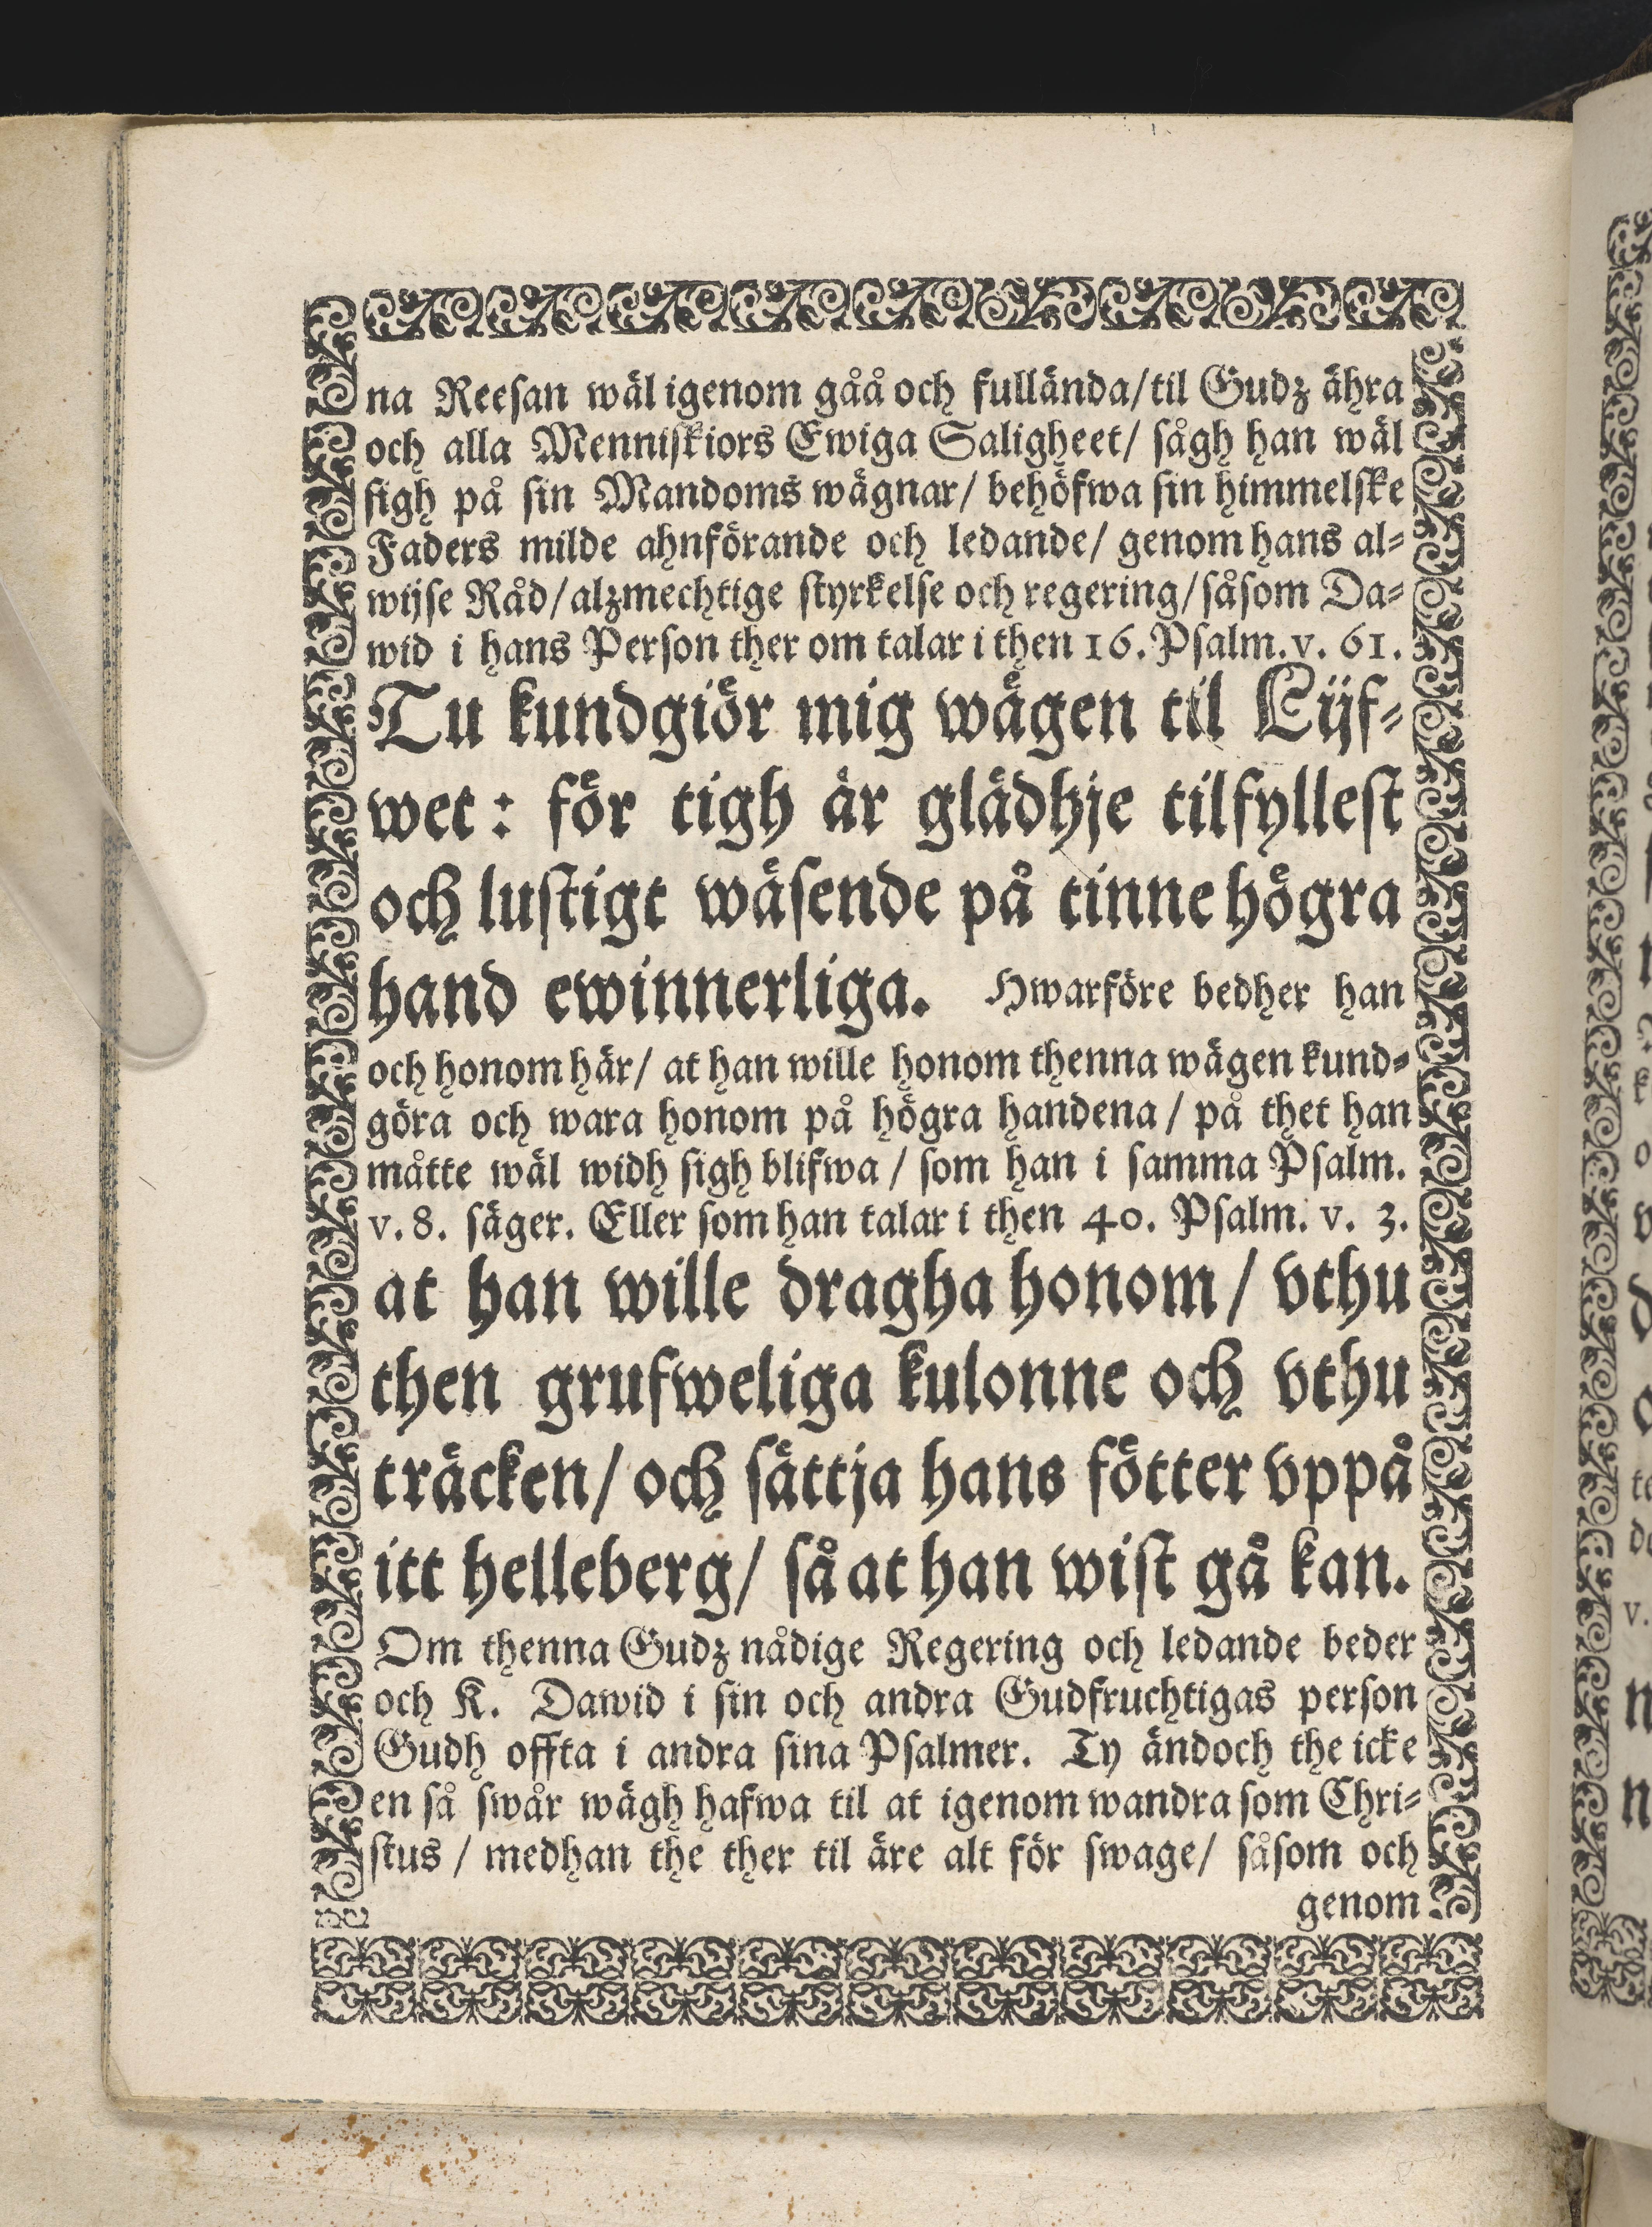 na Reesan wäl igenom gåå och fullända/til Gudz ähra
och alla Menniskiors Ewiga Saligheet/ sågh han wäl
sigh på sin Mandoms wägnar/ behöfwa sin himmelske
Faders milde ahnförande och ledande/ genom hans al-
wijse Råd/alzmechtige styrkelse och regering/såsom Da-
wid i hans Person ther om talar i then 16. Psalm. v. 61.
Tu kundgiör mig wägen til Lijf-
wet: för tigh är glädhje tilfyllest
och lustigt wäsende på tinne högra
hand ewinnerliga. Hwarföre bedher han
och honom här/ at han wille honom thenna wägen kund-
göra och wara honom på högra handena/ på thet han
måtte wäl widh sigh blifwa/ som han i samma Psalm.
v. 8. säger. Eller som han talar i then 40. Psalm. v. 3.
at han wille dragha honom/ vthu
then grufweliga kulonne och vthu
träcken/ och sättja hans fötter vppå
itt helleberg/ så at han wist gå kan.
Om thenna Gudz nådige Regering och ledande beder
och K. Dawid i sin och andra Gudfruchtigas person
Gudh offta i andra sina Psalmer. Ty ändoch the icke
en så swår wägh hafwa til at igenom wandra som Chri-
stus/ medhan the ther til äre alt för swage/ såsom och
genom